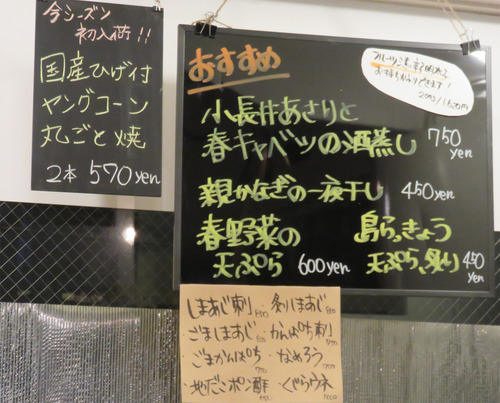 今シーズン
初入荷!!
国産ひげ付
ヤングコーン
丸ごと焼
2本 570yen
おすすめ
お持ち帰りできます!
小長井あさりと
春キャベツの酒蒸し 750
yen
親かなぎの一夜干し 450yen
春野菜の
天ぷら 600yen
島らっきょう
天ぷら, 炙り 450
yen
しまあじ刺 ・炙しまあじ
ごましまあじ ・かんぱち刺
ごまかんぱち ・なめろう
・地だこポン酢 ・くじらウネ